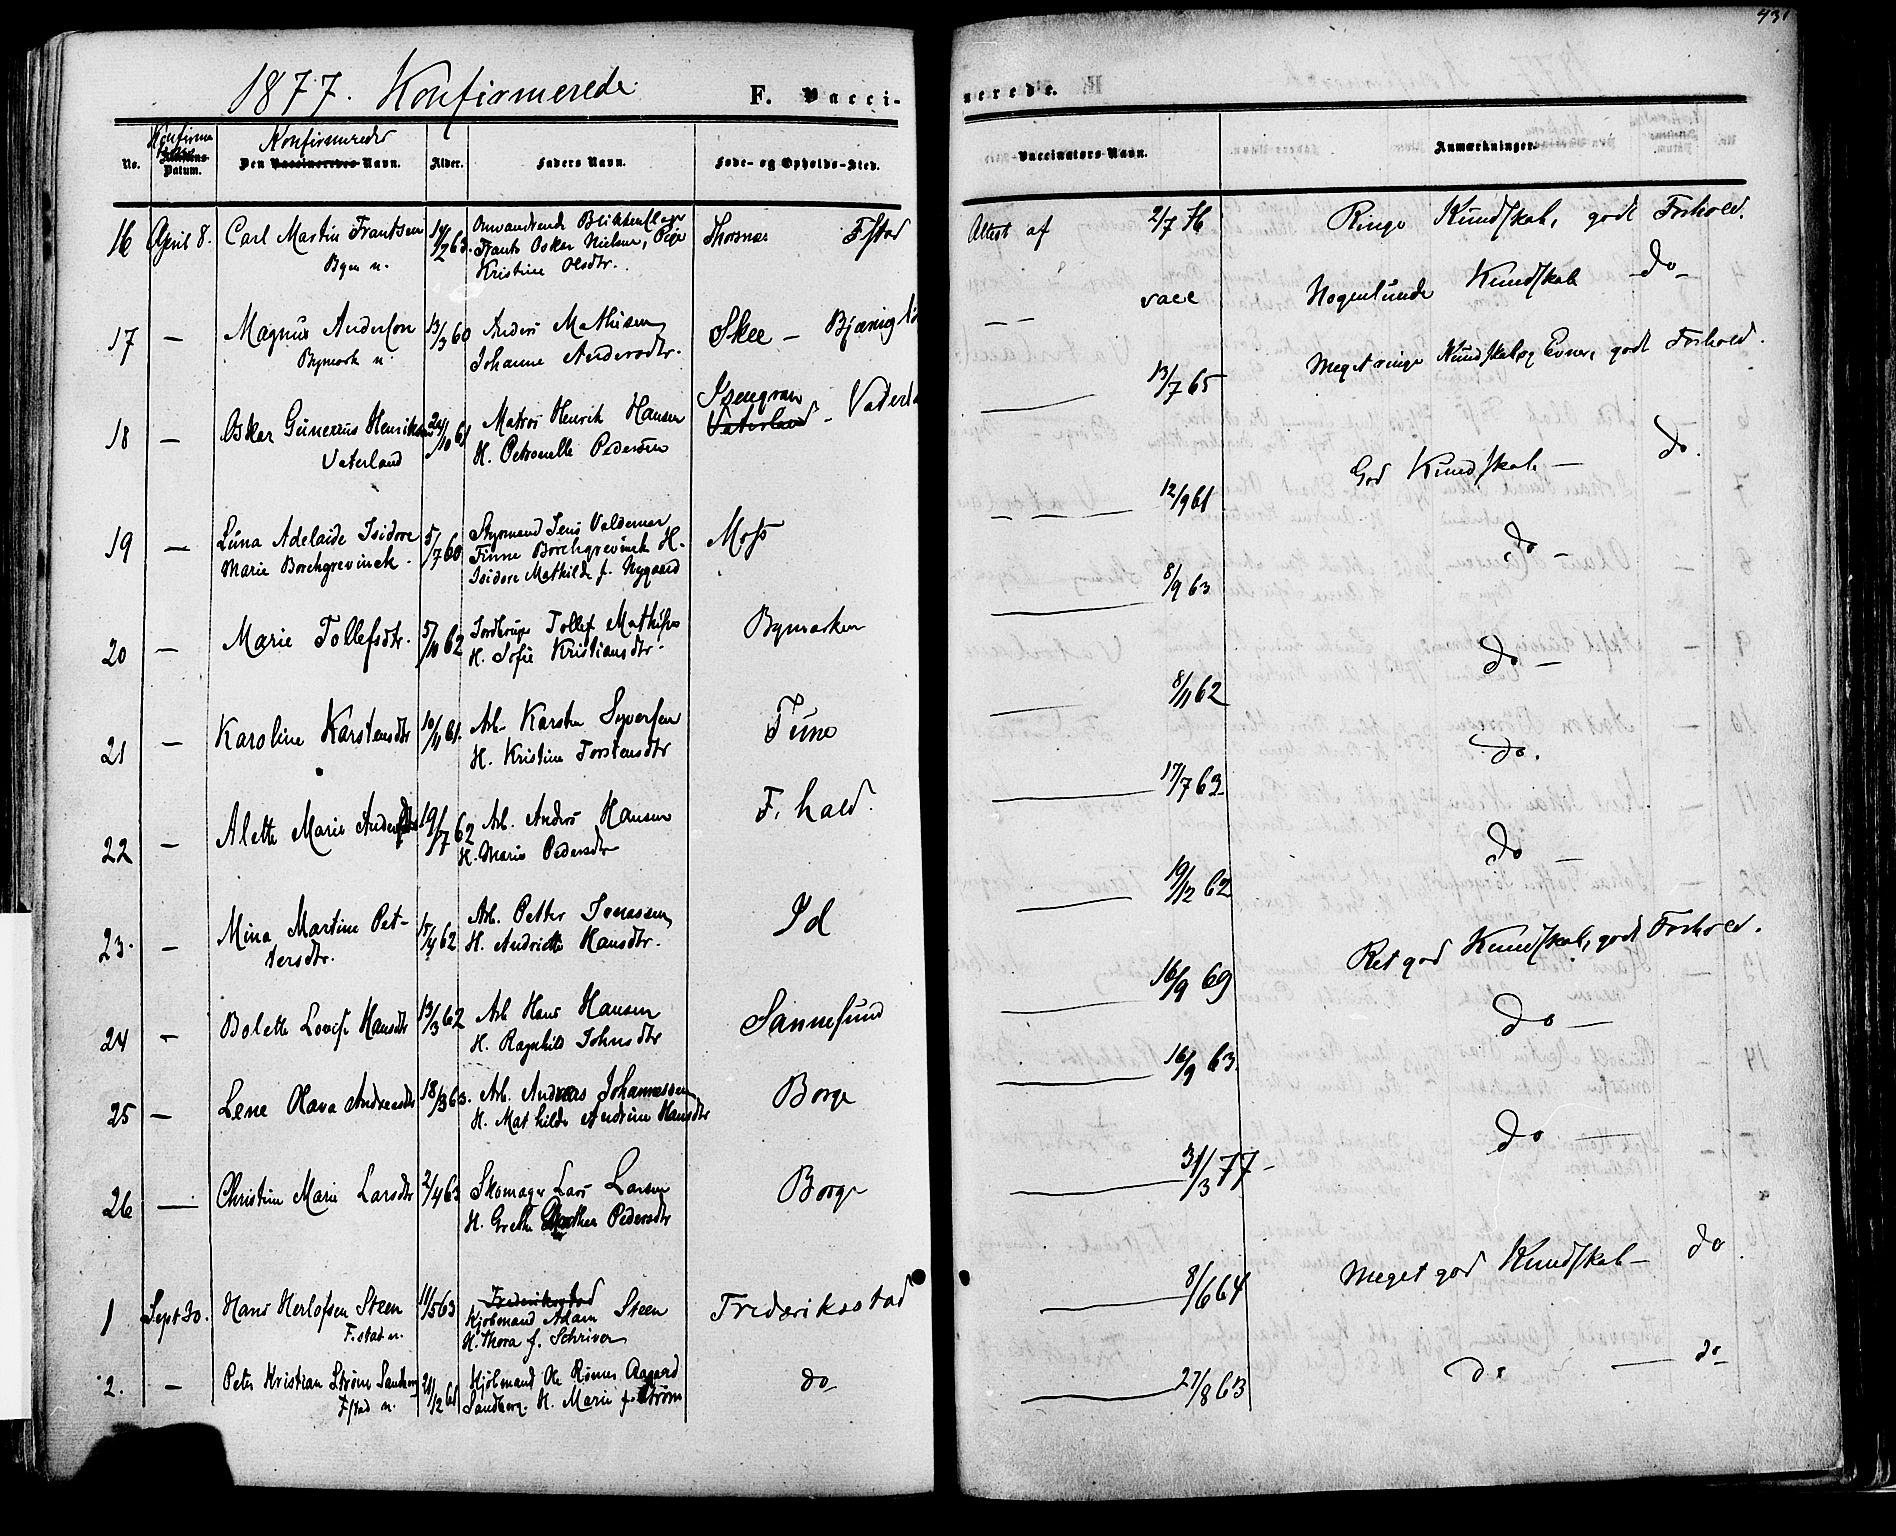 431
1877. Konfirmerede
F. Vacci-
nerede.
No.
Konfirma
Datum.
Konfirmerede
Den Vaccineredes Navn.
Alder.
Faders Navn.
Føde- og Opholds-Sted.
Vaccinators Navn.
Anmærkninger.
16 April 8. Carl Martin Frantsen 14/2 63. Omvandrende Blikkenslager Thorsnæs Fstad Attest af 2/7 76 Ringe Kundskab, godt Forhold.
Byen n. Frants Oskar Nielsen, Pige
Kristine Olsdtr.
17 — Magnus Anderson 13/3 60 Anders Mathisen Skee – — — vacc Nogenlunde Kundskab do –
Bymark n. Johanne Andersdtr.
18 — Oskar Gunerius Henriksen 24/10 61 Matros Henrik Hansen Vaterland – — 13/7 65 Meget ringe Kundskab og Evner, godt Forhold.
Vaterland H. Petronelle Pedersen
19 — Luna Adelaide Isidore 5/7 60 Styrmand Jens Valdemar Moss — 12/9 61 God Kundskab — do.
Marie Borchgrevinck. Finne Borchgrevinck H.
Isidore Mathilde f. Nygaard
20 — Marie Tollefsdtr. 5/10 62 Tollef Mathisen Bymarken — 8/9 63 do –
H. Sofie Kristiansdtr.
21 — Karoline Karstensdtr 10/11 61. Arb. Karsten Syversen Tune — 8/11 62 do –
H. Kristine Torstensdtr
22 — Alette Marie Andersdtr 19/7 62 Arb. Anders Hansen F. hald. — 17/7 63 do.
H. Marie Pedersdtr
23. — Mina Martine Pet- 15/4 62 Arb. Petter Jonassen Id — 19/12 62 do –
tersdtr. H. Andrithe Hansdtr.
24 — Bolette Lovise Hansdtr 13/3 62 Arb Hans Hansen Sannesund — 16/9 69 Ret god Kundskab, godt Forhold.
H. Ragnhild Johnsdtr
25 — Lene Olava Andreasdtr 18/3 63. Arb. Andreas Johannessen Borge — 16/9 63. do —
H. Mathilde Andrine Hansdtr
26 — Christine Marie Larsdtr 2/4 63 Skomager Lars Larsen Borge — 31/3 77 – do —
H. Grethe Pedersdtr
1 Sept 30. Hans Herlofsen Steen 11/5 63 Frederikstad Frederiksstad — 8/6 64 Meget god Kundskab – do.
F.stad n. Kjøbmand Adam Steen
H. Thora f. Schriver
2. — Peter Kristian Strøm Sandberg 21/12 61 Kjøbmand Ole Rømer Aagaard do — 27/8 63 do — do
Fstad n. Sandberg. H. Marie f. Strøm